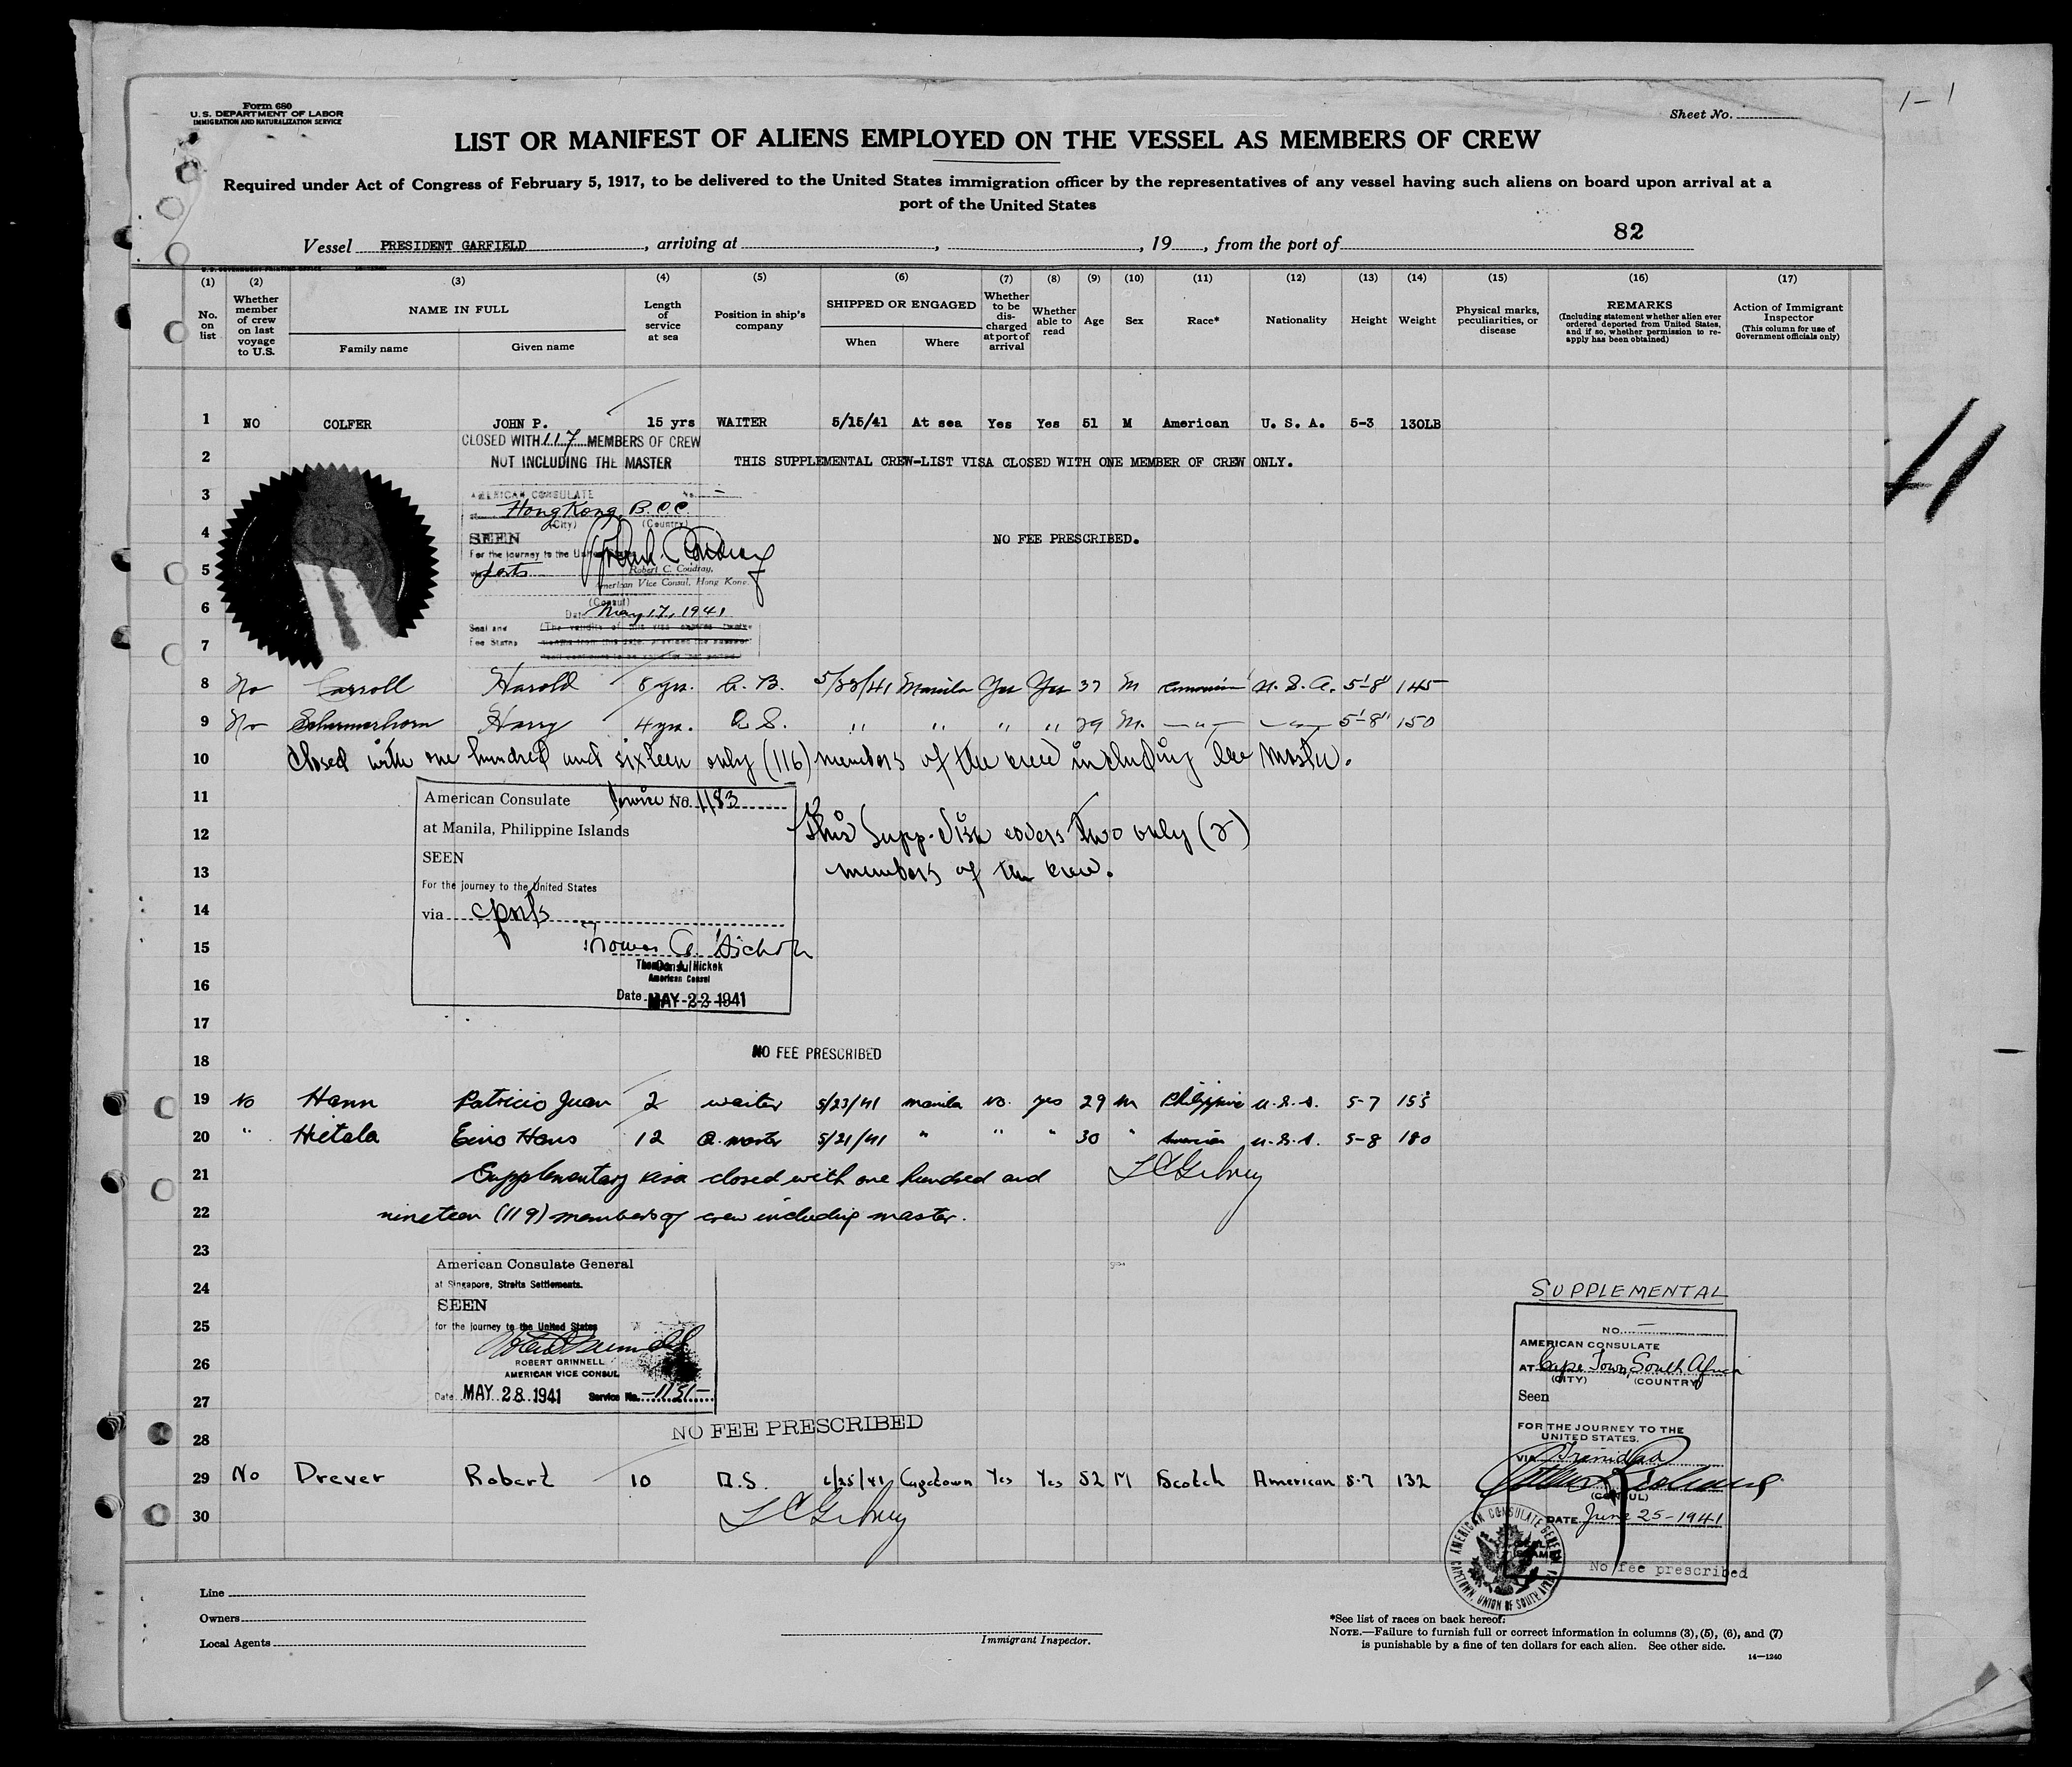 Form 680
U. S. DEPARTMENT OF LABOR
IMMIGRATION AND NATURALIZATION SERVICE
Sheet No.
1-1
LIST OR MANIFEST OF ALIENS EMPLOYED ON THE VESSEL AS MEMBERS OF CREW
Required under Act of Congress of February 5, 1917, to be delivered to the United States immigration officer by the representatives of any vessel having such aliens on board upon arrival at a
port of the United States
82
Vessel PRESIDENT GARFIELD, arriving at , , 19 , from the port of
(1) (2) (3) (4) (5) (6) (7) (8) (9) (10) (11) (12) (13) (14) (15) (16) (17)
No. on list
Whether member of crew on last voyage to U.S.
NAME IN FULL
Family name
Given name
Length of service at sea
Position in ship's company
SHIPPED OR ENGAGED
When
Where
Whether to be discharged at port of arrival
Whether able to read
Age
Sex
Race*
Nationality
Height
Weight
Physical marks, peculiarities, or disease
REMARKS
(Including statement whether alien ever ordered deported from United States, and if so, whether permission to reapply has been obtained)
Action of Immigrant Inspector
(This column for use of Government officials only)
1 NO COLFER JOHN P. 15 yrs WAITER 5/15/41 At sea Yes Yes 51 M American U. S. A. 5-3 130LB
CLOSED WITH 117 MEMBERS OF CREW
2 NOT INCLUDING THE MASTER THIS SUPPLEMENTAL CREW-LIST VISA CLOSED WITH ONE MEMBER OF CREW ONLY.
3 AMERICAN CONSULATE No. -
Hong Kong, B.C.C.
(City) (Country)
4 SEEN NO FEE PRESCRIBED.
For the journey to the United
5 via ports
Robert C. Coudray,
American Vice Consul, Hong Kong.
6 (Consul)
Date May 17, 1941
Seal and
7 Fee Stamp
8 No Carroll Harold 8 yrs. A. B. 5/22/41 Manila Yes Yes 37 M American U. S. A. 5'-8" 145
9 No Schermerhorn Harry 4 yrs. O. S. " " " " 29 M. -"- -"- 5'-8" 150
10 Closed with one hundred and sixteen only (116) members of the crew including the Master.
11 American Consulate Service No. 1183
at Manila, Philippine Islands
12 This Supp. Visa covers two only (2)
SEEN
13 members of the crew.
For the journey to the United States
14 via ports
15 Thomas A. Hickok
Thomas A. Hickok
American Consul
16 Date MAY 22 1941
17
18 NO FEE PRESCRIBED
19 No Hann Patricio Juan 2 waiter 5/23/41 Manila No. yes 29 M Philippine U.S.A. 5-7 153
20 " Hietala Eino Hans 12 Q. master 5/21/41 " " " 30 " American U.S.A. 5-8 180
21 Supplementary visa closed with one hundred and
22 nineteen (119) members of crew including master.
23 American Consulate General
24 at Singapore, Straits Settlements.
SEEN
25 for the journey to the United States
26 ROBERT GRINNELL
AMERICAN VICE CONSUL
27 Date MAY 28 1941 Service No. -1151-
28 NO FEE PRESCRIBED
SUPPLEMENTAL
NO. -
AMERICAN CONSULATE
AT Cape Town, South Africa
(CITY) (COUNTRY)
Seen
FOR THE JOURNEY TO THE
UNITED STATES.
VIA Trinidad
29 No Drever Robert 10 O.S. 6/25/41 Capetown Yes Yes 52 M Scotch American 5-7 132
(CONSUL)
30 DATE June 25-1941
AMERICAN CONSULATE GENERAL CAPETOWN, UNION OF SOUTH AFRICA
No fee prescribed
Line
Owners
Local Agents
Immigrant Inspector.
*See list of races on back hereof.
NOTE.—Failure to furnish full or correct information in columns (3), (5), (6), and (7)
is punishable by a fine of ten dollars for each alien. See other side.
14—1240